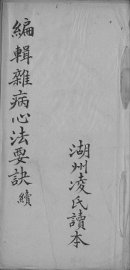 編輯雜病心法要訣續
湖州凌氏讀本